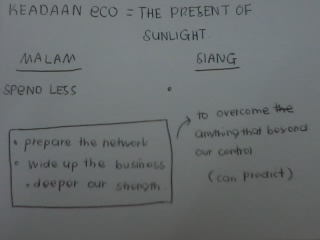 KEADAAN ECO = THE PRESENT OF
SUNLIGHT.
MALAM
SIANG
SPEND LESS
•
• prepare the network
• wide up the business
• deeper our strength.
to overcome the
anything that beyond
our control
(can predict)